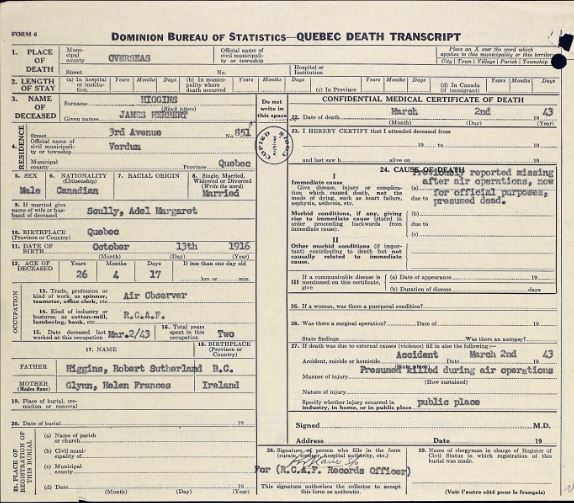 FORM 6
DOMINION BUREAU OF STATISTICS—QUEBEC DEATH TRANSCRIPT
1. PLACE OF DEATH
Municipal county OVERSEAS
Official name of civil municipality or township
Place an X over the word which applies to this municipality or territory
City | Town | Village | Parish | Township
Street No.
Hospital or Institution
2. LENGTH OF STAY
(a) In hospital or institution Years Months Days
(b) In municipality where death occurred Years Months Days
(c) In Province Years Months Days
(d) In Canada (if immigrant) Years Months Days
3. NAME OF DECEASED
Surname HIGGINS
(Block letters)
Given names JAMES HERBERT
Do not write in this space
4. RESIDENCE
Street 3rd Avenue No. 851
Official name of civil municipality or township Verdun
Municipal county Province Quebec
5. SEX
Male
6. NATIONALITY
(Citizenship)
Canadian
7. RACIAL ORIGIN
8. Single, Married, Widowed or Divorced
(Write the word)
Married
9. If married give name of wife or husband of deceased Scully, Adel Margaret
10. BIRTHPLACE
(Province or Country) Quebec
11. DATE OF BIRTH October 13th 1916
(Month) (Day) (Year)
12. AGE OF DECEASED
Years Months Days If less than one day old
26 4 17 hrs or min.
OCCUPATION
13. Trade, profession or kind of work, as spinner, teamster, office clerk, etc. Air Observer
14. Kind of industry or business, as cotton-mill, lumbering, bank, etc. R.C.A.F.
15. Date deceased last worked at this occupation Mar.2/43
16. Total years spent in this occupation Two
17. NAME
18. BIRTHPLACE
(Province or Country)
FATHER Higgins, Robert Sutherland B.C.
MOTHER
(Maiden Name) Glynn, Helen Frances Ireland
19. Place of burial, cremation or removal
20. Date of burial 19
21. PLACE OF REGISTRATION OF THIS BURIAL
(a) Name of parish or church
(b) Civil municipality of
(c) Municipal county
(d) Date
(Month) (Day) (Year)
CONFIDENTIAL MEDICAL CERTIFICATE OF DEATH
22. Date of death March 2nd 43
(Month) (Day) (Year)
23. I HEREBY CERTIFY that I attended deceased from
19 to 19
and last saw h alive on 19
24. CAUSE OF DEATH
I
Immediate cause
Give disease, injury or complication which caused death, not the mode of dying, such as heart failure, asphyxia, asthenia, etc.
Previously reported missing
after air operations, now
due to for official purposes,
presumed dead.
Morbid conditions, if any, giving rise to immediate cause (stated in order proceeding backwards from immediate cause).
due to
(c)
II
Other morbid conditions (if important) contributing to death but not causally related to immediate cause.
III
If a communicable disease is mentioned on this certificate, give
(a) Date of appearance 19
(b) Duration of disease days
25. If a woman, was there a puerperal condition?
26. Was there a surgical operation? Date of 19
State findings Was there an autopsy?
27. If death was due to external causes (violence) fill in also the following:—
Accident March 2nd 43
Accident, suicide or homicide Date 19
(State which)
Presumed killed during air operations
Manner of injury
(How sustained)
Nature of injury
Specify whether injury occurred in industry, in home, or in public place public place
Signed M.D.
Address Date 19
28. Signature of person who fills in the form
For (R.C.A.F. Records Officer)
This signature authorizes the collector to accept this form as authentic.
29. Name of clergyman in charge of Register of Civil Status in which registration of this burial was made.
(Voir l'autre côté pour le français)